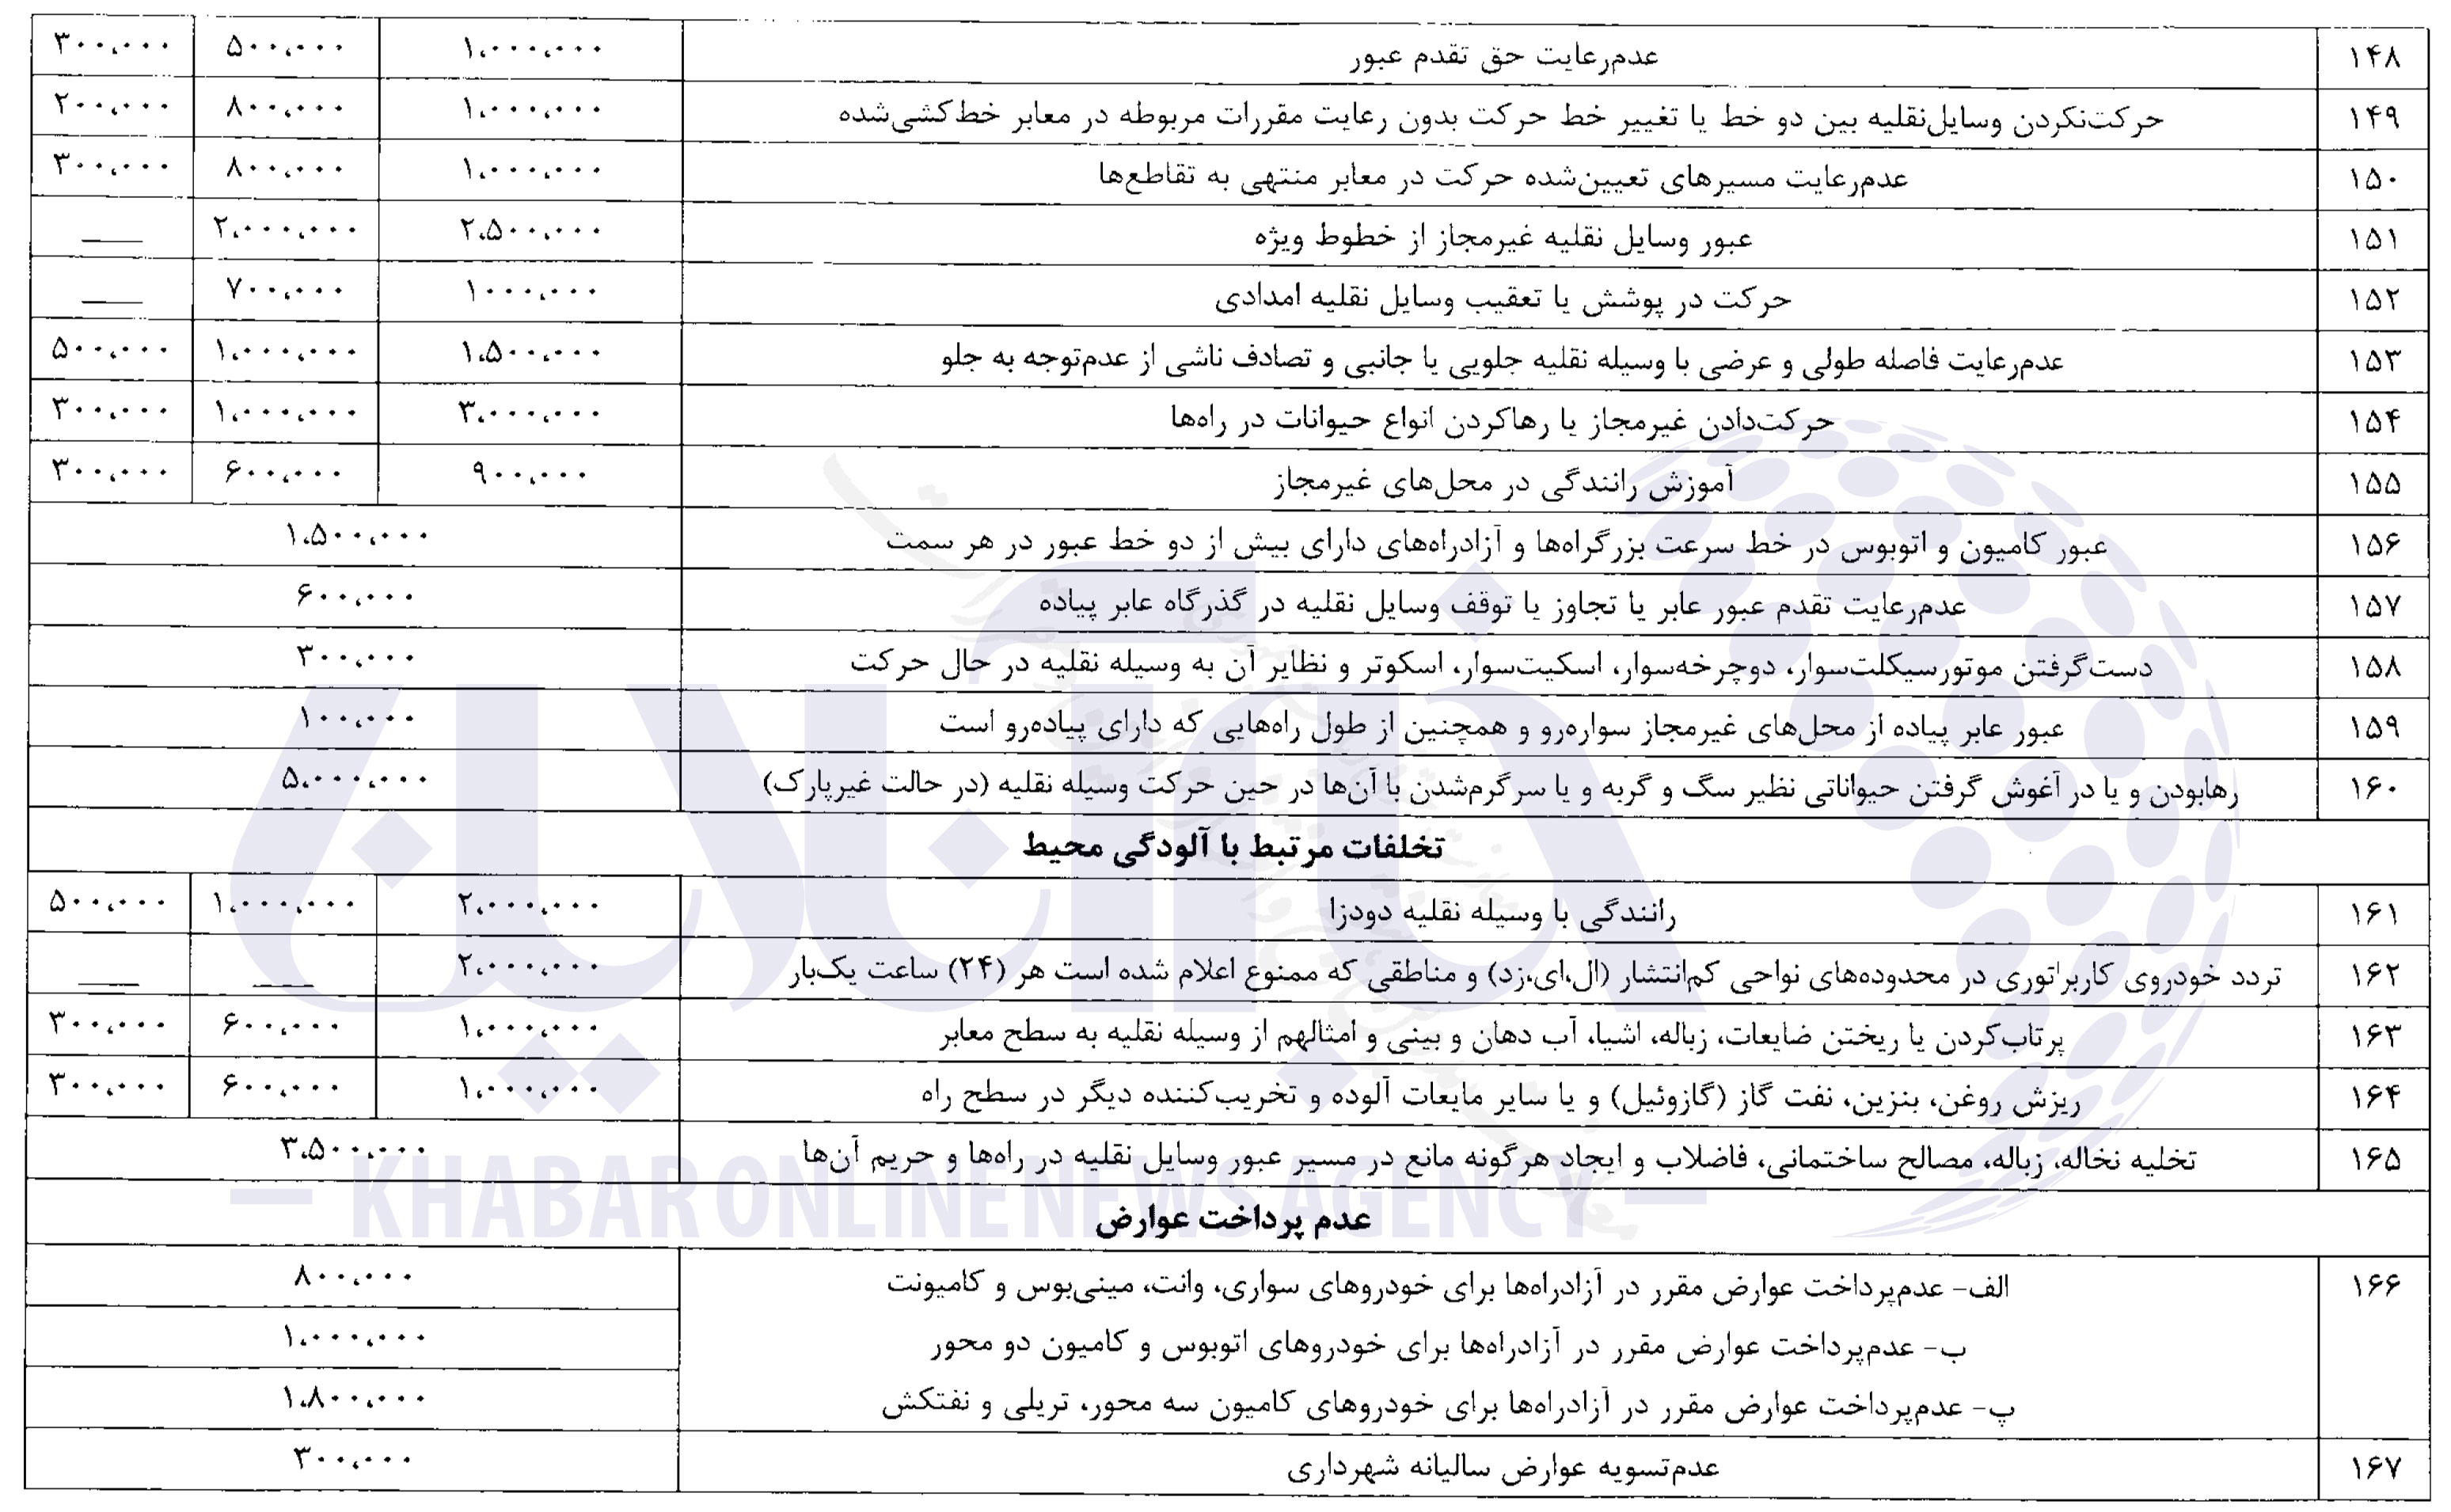 ۱۴۸ عدم‌رعایت حق تقدم عبور ۱،۰۰۰،۰۰۰ ۵۰۰،۰۰۰ ۳۰۰،۰۰۰
۱۴۹ حرکت‌نکردن وسایل‌نقلیه بین دو خط یا تغییر خط حرکت بدون رعایت مقررات مربوطه در معابر خط‌کشی‌شده ۱،۰۰۰،۰۰۰ ۸۰۰،۰۰۰ ۲۰۰،۰۰۰
۱۵۰ عدم‌رعایت مسیرهای تعیین‌شده حرکت در معابر منتهی به تقاطع‌ها ۱،۰۰۰،۰۰۰ ۸۰۰،۰۰۰ ۳۰۰،۰۰۰
۱۵۱ عبور وسایل نقلیه غیرمجاز از خطوط ویژه ۲،۵۰۰،۰۰۰ ۲،۰۰۰،۰۰۰ ___
۱۵۲ حرکت در پوشش یا تعقیب وسایل نقلیه امدادی ۱۰۰۰،۰۰۰ ۷۰۰،۰۰۰ ___
۱۵۳ عدم‌رعایت فاصله طولی و عرضی با وسیله نقلیه جلویی یا جانبی و تصادف ناشی از عدم‌توجه به جلو ۱،۵۰۰،۰۰۰ ۱،۰۰۰،۰۰۰ ۵۰۰،۰۰۰
۱۵۴ حرکت‌دادن غیرمجاز یا رهاکردن انواع حیوانات در راه‌ها ۳،۰۰۰،۰۰۰ ۱،۰۰۰،۰۰۰ ۳۰۰،۰۰۰
۱۵۵ آموزش رانندگی در محل‌های غیرمجاز ۹۰۰،۰۰۰ ۶۰۰،۰۰۰ ۳۰۰،۰۰۰
۱۵۶ عبور کامیون و اتوبوس در خط سرعت بزرگراه‌ها و آزادراه‌های دارای بیش از دو خط عبور در هر سمت ۱،۵۰۰،۰۰۰
۱۵۷ عدم‌رعایت تقدم عبور عابر یا تجاوز یا توقف وسایل نقلیه در گذرگاه عابر پیاده ۶۰۰،۰۰۰
۱۵۸ دست‌گرفتن موتورسیکلت‌سوار، دوچرخه‌سوار، اسکیت‌سوار، اسکوتر و نظایر آن به وسیله نقلیه در حال حرکت ۳۰۰،۰۰۰
۱۵۹ عبور عابر پیاده از محل‌های غیرمجاز سواره‌رو و همچنین از طول راه‌هایی که دارای پیاده‌رو است ۱۰۰،۰۰۰
۱۶۰ رهابودن و یا در آغوش گرفتن حیواناتی نظیر سگ و گربه و یا سرگرم‌شدن با آن‌ها در حین حرکت وسیله نقلیه (در حالت غیرپارک) ۵،۰۰۰،۰۰۰
تخلفات مرتبط با آلودگی محیط
۱۶۱ رانندگی با وسیله نقلیه دودزا ۲،۰۰۰،۰۰۰ ۱،۰۰۰،۰۰۰ ۵۰۰،۰۰۰
۱۶۲ تردد خودروی کاربراتوری در محدوده‌های نواحی کم‌انتشار (ال،ای،زد) و مناطقی که ممنوع اعلام شده است هر (۲۴) ساعت یک‌بار ۲،۰۰۰،۰۰۰ ___ ___
۱۶۳ پرتاب‌کردن یا ریختن ضایعات، زباله، اشیا، آب دهان و بینی و امثالهم از وسیله نقلیه به سطح معابر ۱،۰۰۰،۰۰۰ ۶۰۰،۰۰۰ ۳۰۰،۰۰۰
۱۶۴ ریزش روغن، بنزین، نفت گاز (گازوئیل) و یا سایر مایعات آلوده و تخریب‌کننده دیگر در سطح راه ۱،۰۰۰،۰۰۰ ۶۰۰،۰۰۰ ۳۰۰،۰۰۰
۱۶۵ تخلیه نخاله، زباله، مصالح ساختمانی، فاضلاب و ایجاد هرگونه مانع در مسیر عبور وسایل نقلیه در راه‌ها و حریم آن‌ها ۳،۵۰۰،۰۰۰
عدم پرداخت عوارض
۱۶۶ الف- عدم‌پرداخت عوارض مقرر در آزادراه‌ها برای خودروهای سواری، وانت، مینی‌بوس و کامیونت ۸۰۰،۰۰۰
ب- عدم‌پرداخت عوارض مقرر در آزادراه‌ها برای خودروهای اتوبوس و کامیون دو محور ۱،۰۰۰،۰۰۰
پ- عدم‌پرداخت عوارض مقرر در آزادراه‌ها برای خودروهای کامیون سه محور، تریلی و نفتکش ۱،۸۰۰،۰۰۰
۱۶۷ عدم‌تسویه عوارض سالیانه شهرداری ۳۰۰،۰۰۰
خبرآنلاین
— KHABAR ONLINE NEWS AGENCY —